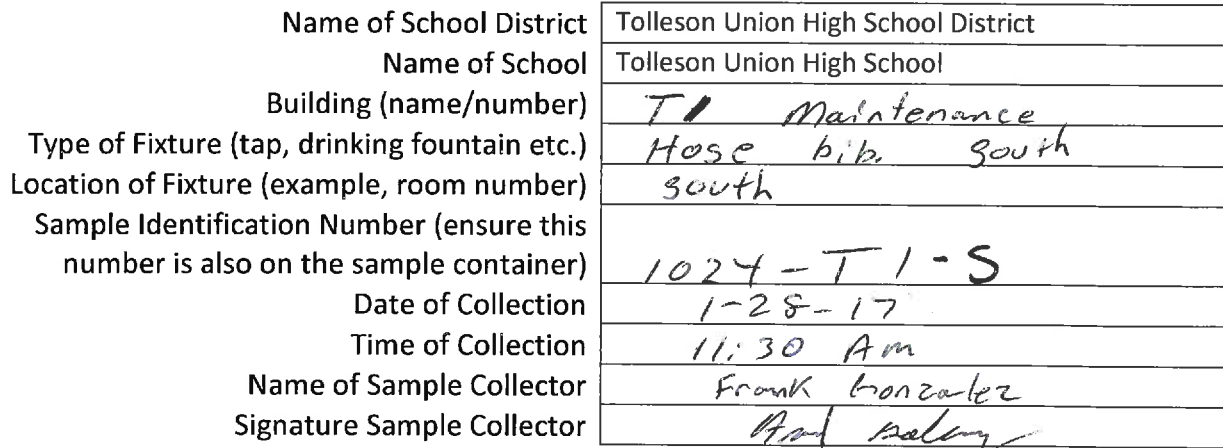 Name of School District Tolleson Union High School District
Name of School Tolleson Union High School
Building (name/number) T1 Maintenance
Type of Fixture (tap, drinking fountain etc.) Hose bib. south
Location of Fixture (example, room number) south
Sample Identification Number (ensure this
number is also on the sample container) 1024-T1-S
Date of Collection 1-28-17
Time of Collection 11:30 Am
Name of Sample Collector Frank Gonzalez
Signature Sample Collector